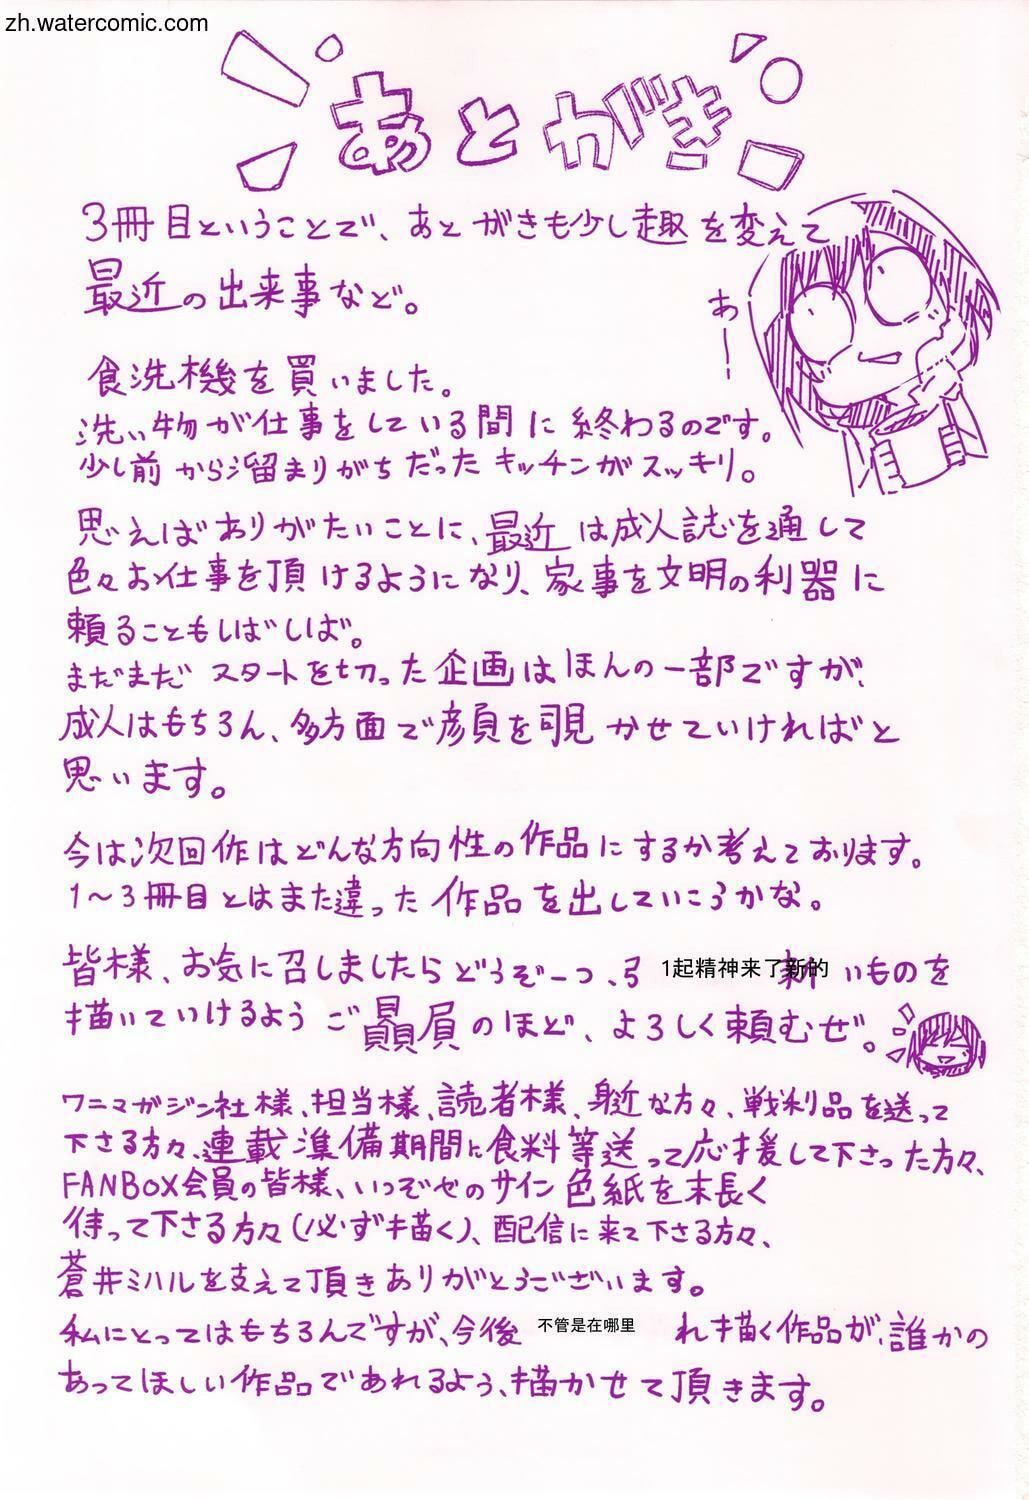 zh.watercomic.com
あとがき
3冊目ということで、あとがきも少し趣を変えて
最近の出来事など。
あーー
食洗機を買いました。
洗い物が仕事をしている間に終わるのです。
少し前から溜まりがちだったキッチンがスッキリ。
思えばありがたいことに、最近は成人誌を通して
色々お仕事を頂けるようになり、家事を文明の利器に
頼ることもしばしば。
まだまだスタートを切った企画はほんの一部ですが、
成人はもちろん、多方面で彦頁を覗かせていければと
思います。
今は次回作はどんな方向性の作品にするか考えております。
1〜3冊目とはまた違った作品を出していこうかな。
皆様、お気に召しましたらどうぞ一つ、 1起精神来了新的 いものを
描いていけるようご贔屓のほど、よろしく頼むぜ。
ワニマガジン社様、担当様、読者様、身近な方々、戦利品を送って
下さる方々、連載準備期間に食料等送って応援して下さった方々、
FANBOX会員の皆様、いつぞやのサイン色紙を末長く
待って下さる方々(必ず描く)、配信に来て下さる方々、
蒼井ミハルを支えて頂きありがとうございます。
私にとってはもちろんですが、今後 不管是在哪里 れ描く作品が、誰かの
あってほしい作品であれるよう、描かせて頂きます。